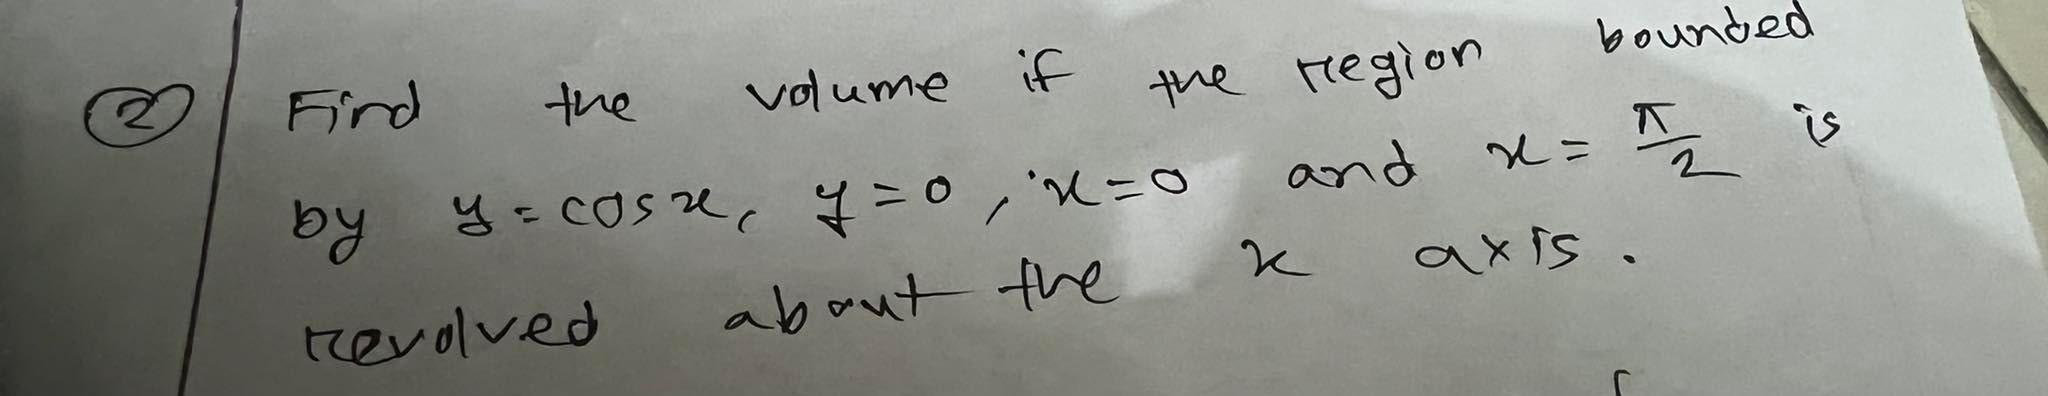 ② Find the volume if the region bounded
by y = cosx, y = 0, x = 0 and x = π/2 is
revolved about the x axis.